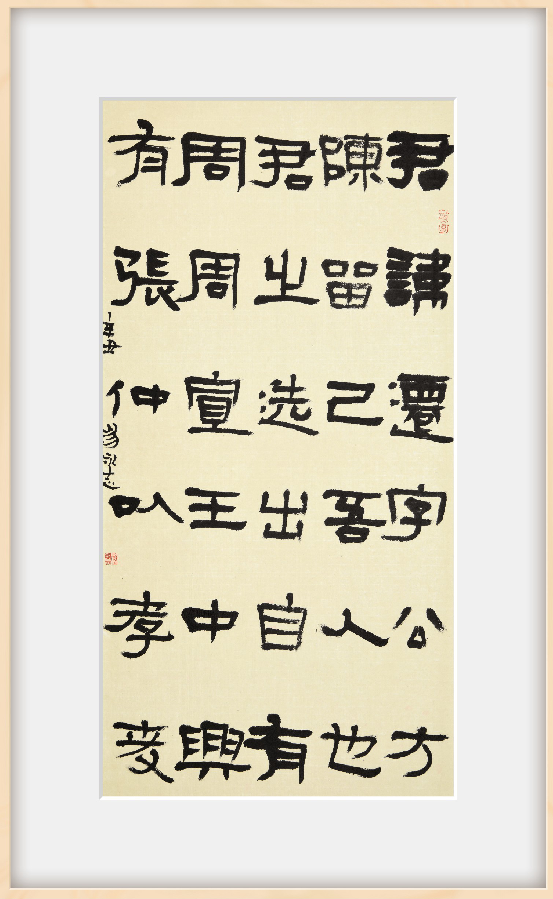 君諱遷字公方
陳留己吾人也
君之选出自有
周周宣王中興
有張仲以孝友
辛丑 永志